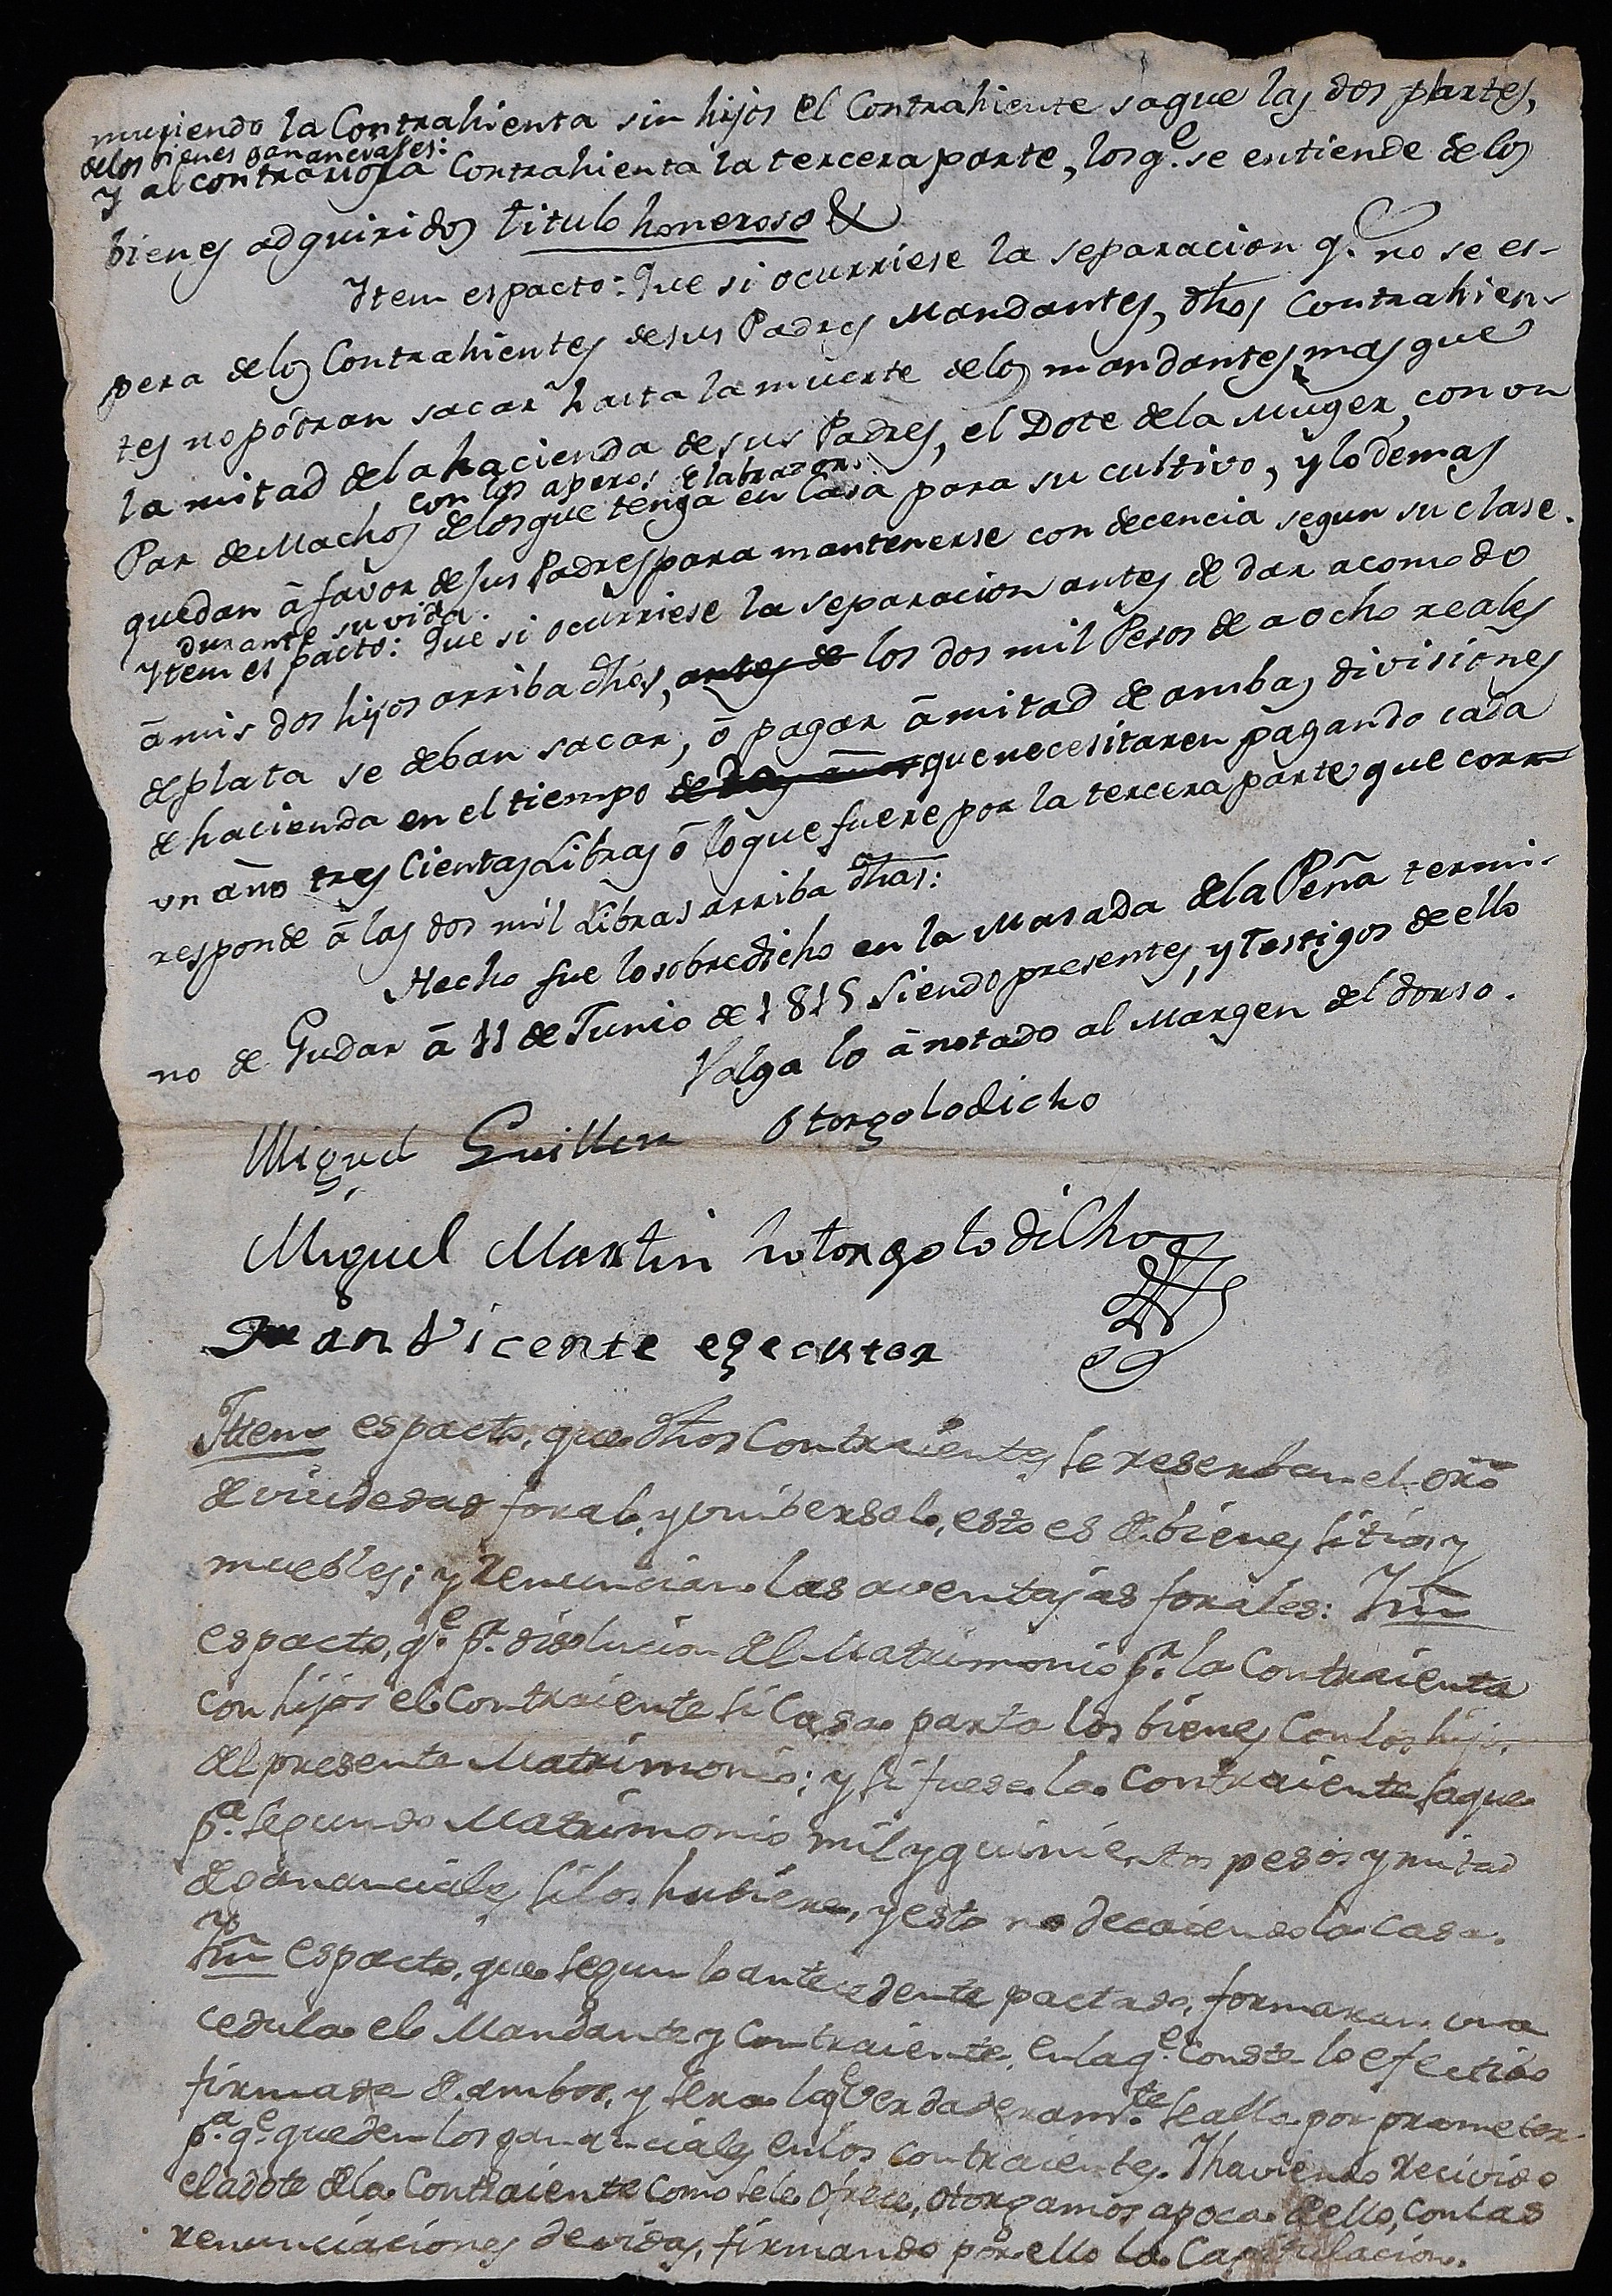 muriendo la Contrahienta sin hijos el Contrahiente saque las dos partes,
de los bienes gananciales:
Y al contrario la Contrahienta la tercera parte, los q.e se entiende de los
bienes adquiridos titulo honeroso &
Ytem es pacto: Que si ocurriese la separacion q.e no se es-
pera de los Contrahientes de sus Padres Mandantes, dhos Contrahien-
tes no podran sacar hasta la muerte de los mandantes, mas que
la mitad de la hacienda de sus Padres, el Dote de la Muger, con un
con los aperos de labrazon.
Par de Machos de los que tenga en Casa para su cultivo, y lo demas
quedan á favor de sus Padres para mantenerse con decencia segun su clase.
durante su vida.
Ytem es pacto: Que si ocurriese la separacion antes de dar acomodo
á mis dos hijos arriba dhos, antes de los dos mil Pesos de a ocho reales
de plata se deban sacar, ó pagar á mitad de ambas divisiones
de hacienda en el tiempo de dos años que necesitaren pagando cada
un año tres Cientas Libras ó lo que fuere por la tercera parte que corr
responde á las dos mil Libras arriba dhas:
Hecho fue lo sobredicho en la Masada de la Peña termi-
no de Gudar á 11 de Junio de 1815 Siendo presentes, y Testigos de ello
Valga lo ánotado al Margen del dorso.
Miguel Guillen Otorgo lo dicho
Miguel Martin hotorgo lo dilho
Juan Vicente egecutor
Yttem es pacto, que dhos Contraientes se reserban el dro
de viudedad foral, y unibersal, esto es de bienes sitios y
muebles; y renuncian las aventajas forales: Ytm
es pacto, q.e p.r disolucion del Matrimonio p.r la Contraienta
con hijos el Contraiente si Casa parta los bienes con los hijos
del presente Matrimonio; y si fuese la Contraienta saque
p.a segundo Matrimonio mil y quinientos pesos y mitad
de gananciales si los hubiere, y esto no decaiendo la casa.
Ytm es pacto, que segun lo antecedente pactado, formaran una
cedula el Mandante y Contraiente, en la q.e conste lo efectibo
firmada de ambos, y sera lo q.e verdaderam.te se alla por prometer
p.a q.e queden los gananciales en los contraientes. Y haviendo recivido
el adote de la Contraienta como se le ofrece, otorgamos apoca de ello, con las
renunciaciones devidas, firmando por ello la Capitulacion.